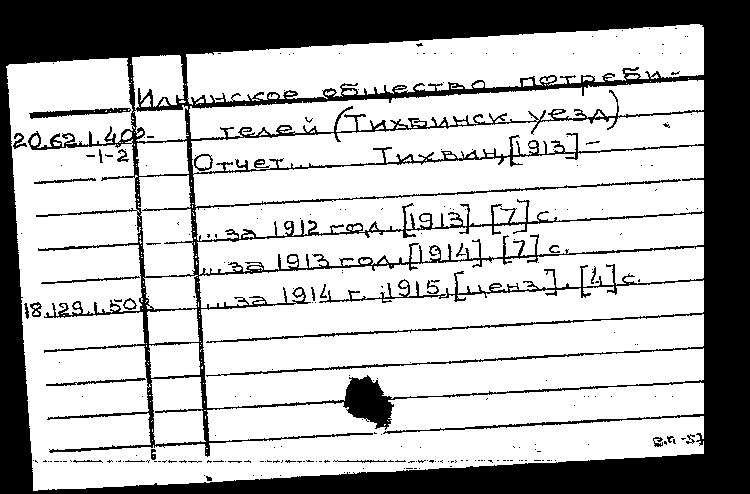 Ильинское общество потреби-
20.62.1.402- телей (Тихвинск. уезд)
-1-2 Отчет... Тихвин, [1913] -
...за 1912 год. [1913]. [7] с.
...за 1913 год. [1914]. [7] с.
18.129.1.508 ...за 1914 г. 1915, [ценз.]. [4] с.
В.п -57